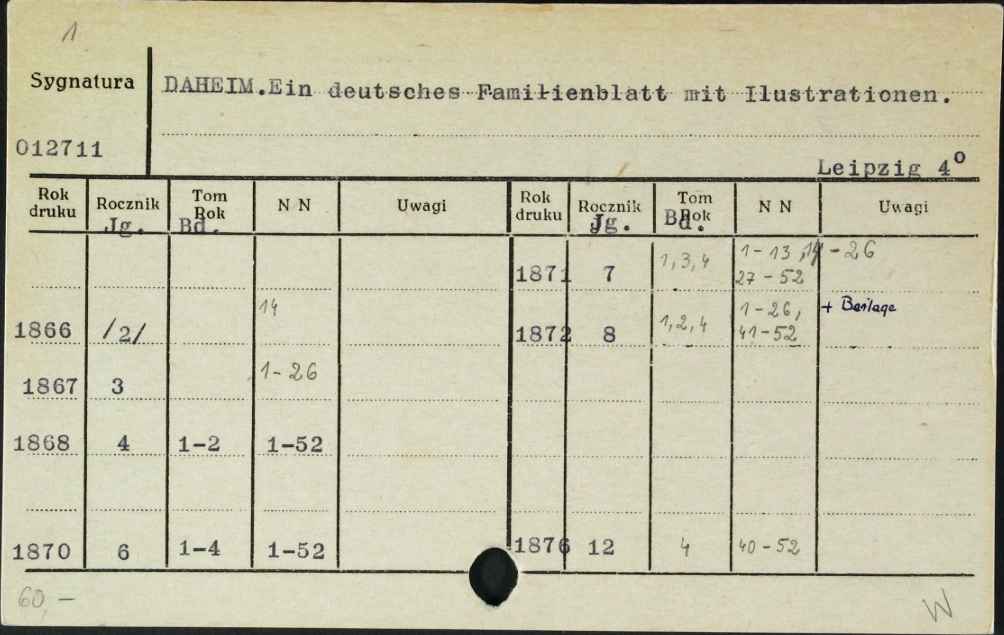 1
Sygnatura DAHEIM.Ein deutsches Familienblatt mit Ilustrationen.
012711
Leipzig 4⁰
Rok druku Rocznik Tom Rok N N Uwagi Rok druku Rocznik Tom Rok N N Uwagi
Jg. Bd. Jg. Bd.
1871 7 1,3,4 1-13, 14-26
27-52
1866 /2/ 14 1872 8 1,2,4 1-26, + Beilage
41-52
1867 3 1-26
1868 4 1-2 1-52
1870 6 1-4 1-52 1876 12 4 40-52
60,- W